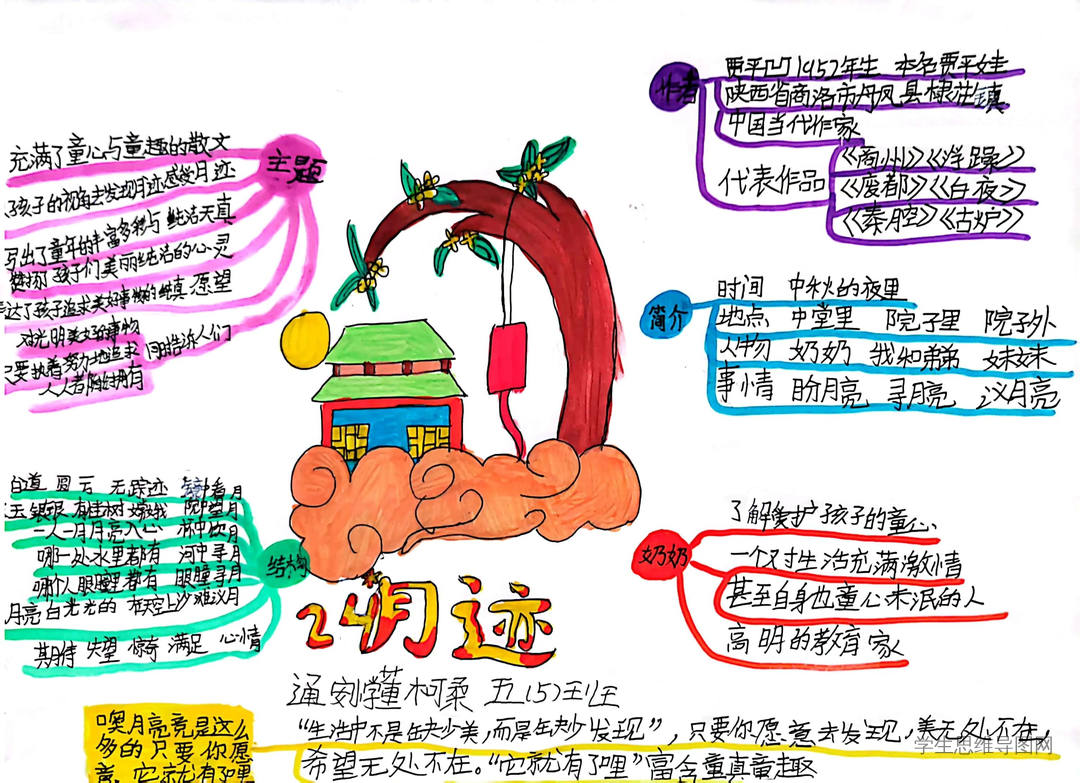 作者
贾平凹1952年生 本名贾平娃
陕西省商洛市丹凤县棣花镇
中国当代作家
代表作品
《商州》《浮躁》
《废都》《白夜》
《秦腔》《古炉》
主题
充满了童心与童趣的散文
孩子的视角去发现月迹感受月迹
写出了童年的丰富多彩与 纯洁天真
赞扬 孩子们美丽纯洁的心灵
达了孩子追求美好事物的纯真 愿望
对光明美好的事物
只要执着努力地追求 同时告诉人们
人人都能够拥有
简介
时间 中秋的夜里
地点 中堂里 院子里 院子外
人物 奶奶 我和弟弟 妹妹
事情 盼月亮 寻月亮 议月亮
结构
白道 圆 亏 无踪迹 看月
玉银银 有桂树 嫦娥 院中望月
一人一月月亮入心 杯中饮月
哪一处水里都有 河中寻月
哪个人眼睛里都有 眼瞳寻月
月亮白光光的 在天空上 沙滩议月
期待 失望 惊奇 满足 心情
奶奶
了解爱护孩子的童心
一个对生活充满激情
甚至自身也童心未泯的人
高明的教育家
24月迹
通刻学董柯柔 五(5)班
噢月亮竟是这么
多的只要你愿
意,它就有了哩
“生活中不是缺少美,而是缺少发现”,只要你愿意去发现,美无处不在,
希望无处不在。“它就有了哩”富含童真童趣
学生思维导图网